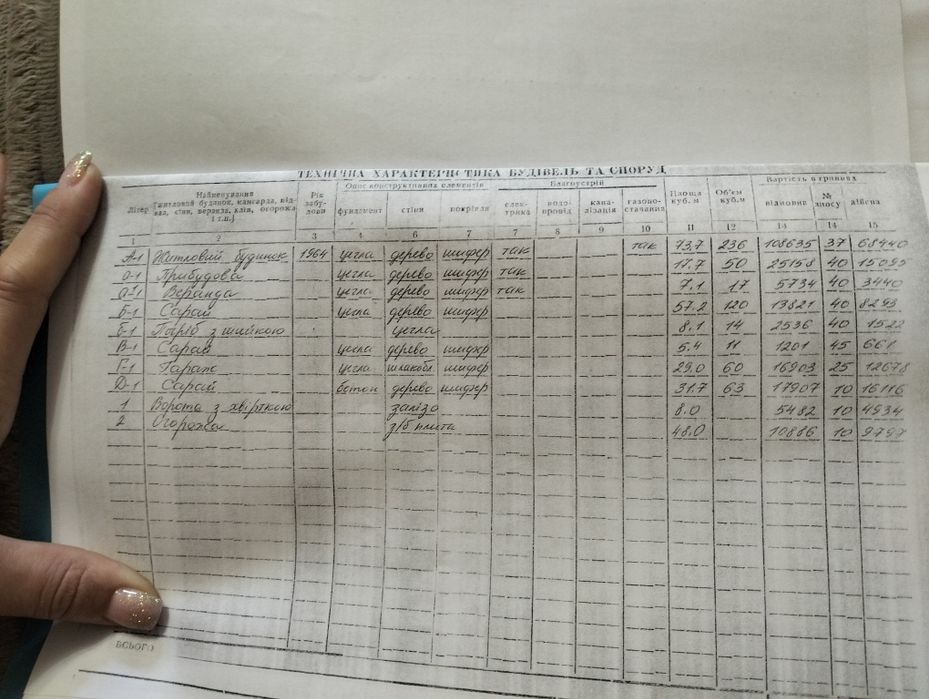 ТЕХНІЧНА ХАРАКТЕРИСТИКА БУДІВЕЛЬ ТА СПОРУД
Літер Найменування [житловой будинок, мансарда, підвал, сіни, веранда, хлів, огорожа і т.п.] Рік забудови Опис конструктивних елементів фундамент стіни покрівля Благоустрій електрика водопровід каналізація газопостачання Площа куб. м Об'єм куб.м Вартість в гривнах відновна № зносу дійсна
1 2 3 4 6 7 7 8 9 10 11 12 13 14 15
А-1 Житловий будинок 1964 цегла дерево шифер так так 73,7 236 108635 37 68440
а-1 Прибудова цегла дерево шифер так 17.7 50 25158 40 15095
а1-1 Веранда цегла дерево шифер так 7.1 17 5734 40 3440
Б-1 Сарай цегла дерево шифер 57.2 120 13821 40 8293
б-1 Погріб з шийкою цегла 8.1 14 2536 40 1522
В-1 Сарай цегла дерево шифер 5.4 11 1201 45 661
Г-1 Гараж цегла шлакобл шифер 29.0 60 16903 25 12678
Д-1 Сарай бетон дерево шифер 31.7 63 17907 10 16116
1 Ворота з хвірткою залізо 8.0 5482 10 4934
2 Огорожа з/б плита 48.0 10886 10 9797
ВСЬОГО